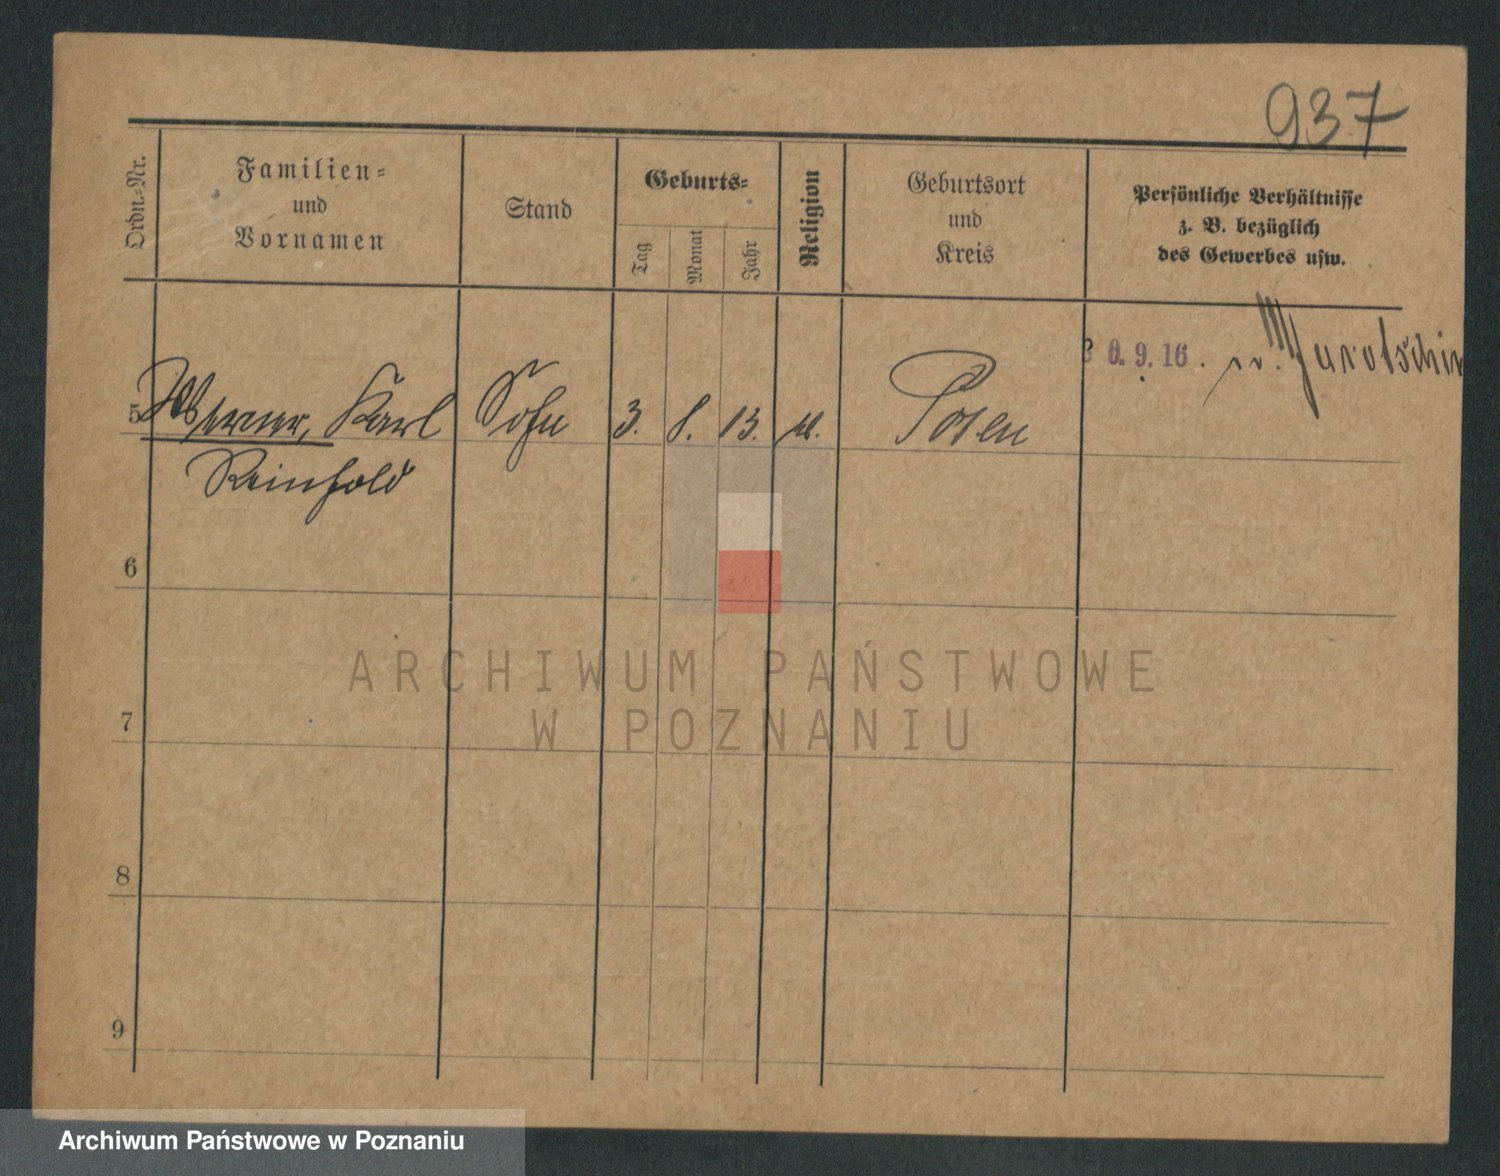 937
Ordn.-Nr.
Familien-
und
Vornamen
Stand
Geburts-
Tag
Monat
Jahr
Religion
Geburtsort
und
Kreis
Persönliche Verhältnisse
z. B. bezüglich
des Gewerbes usw.
30.9.16. n. Jarotschin
5 Werner, Karl Sohn 3. 8. 13. Posen
Reinhold
6
7
8
9
ARCHIWUM PAŃSTWOWE
W POZNANIU
Archiwum Państwowe w Poznaniu